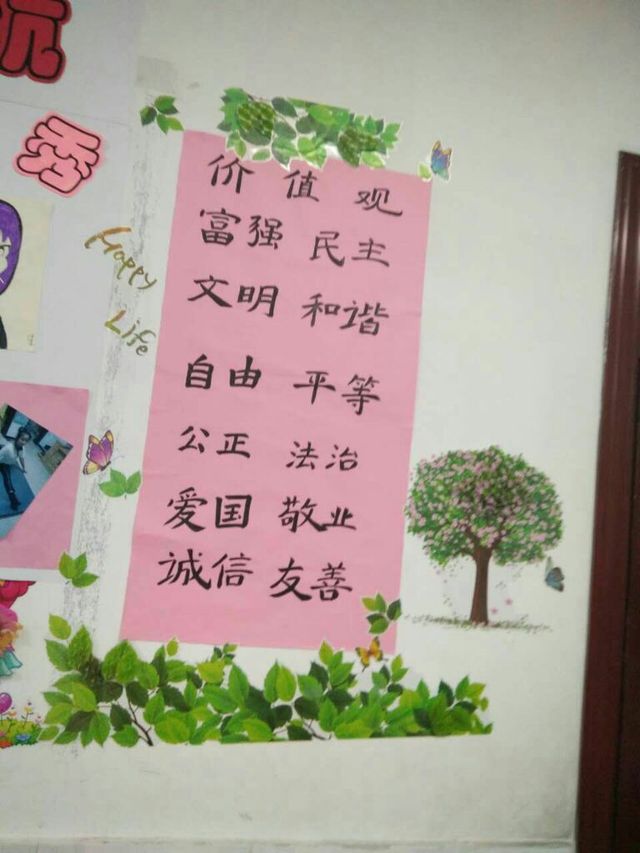 秀
Happy
Life
价值观
富强 民主
文明 和谐
自由 平等
公正 法治
爱国 敬业
诚信 友善